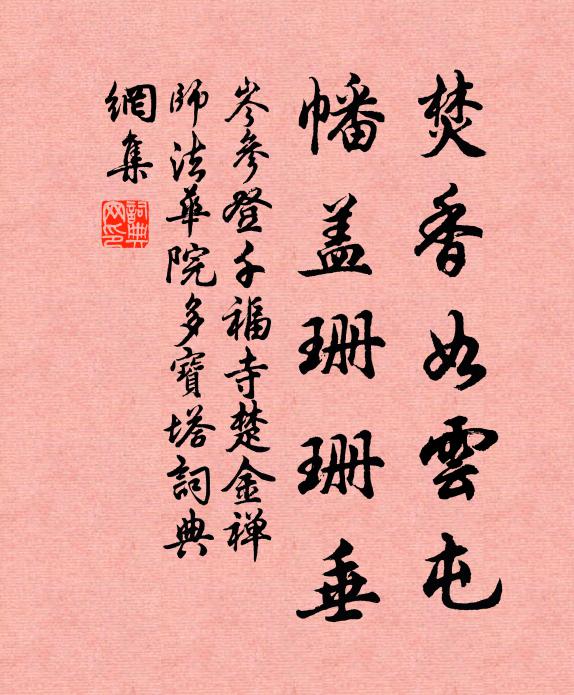 焚香如雲屯
幡盖珊珊垂
岑參登千福寺楚金禅
師法華院多寶塔詞典
網集
詞典網印